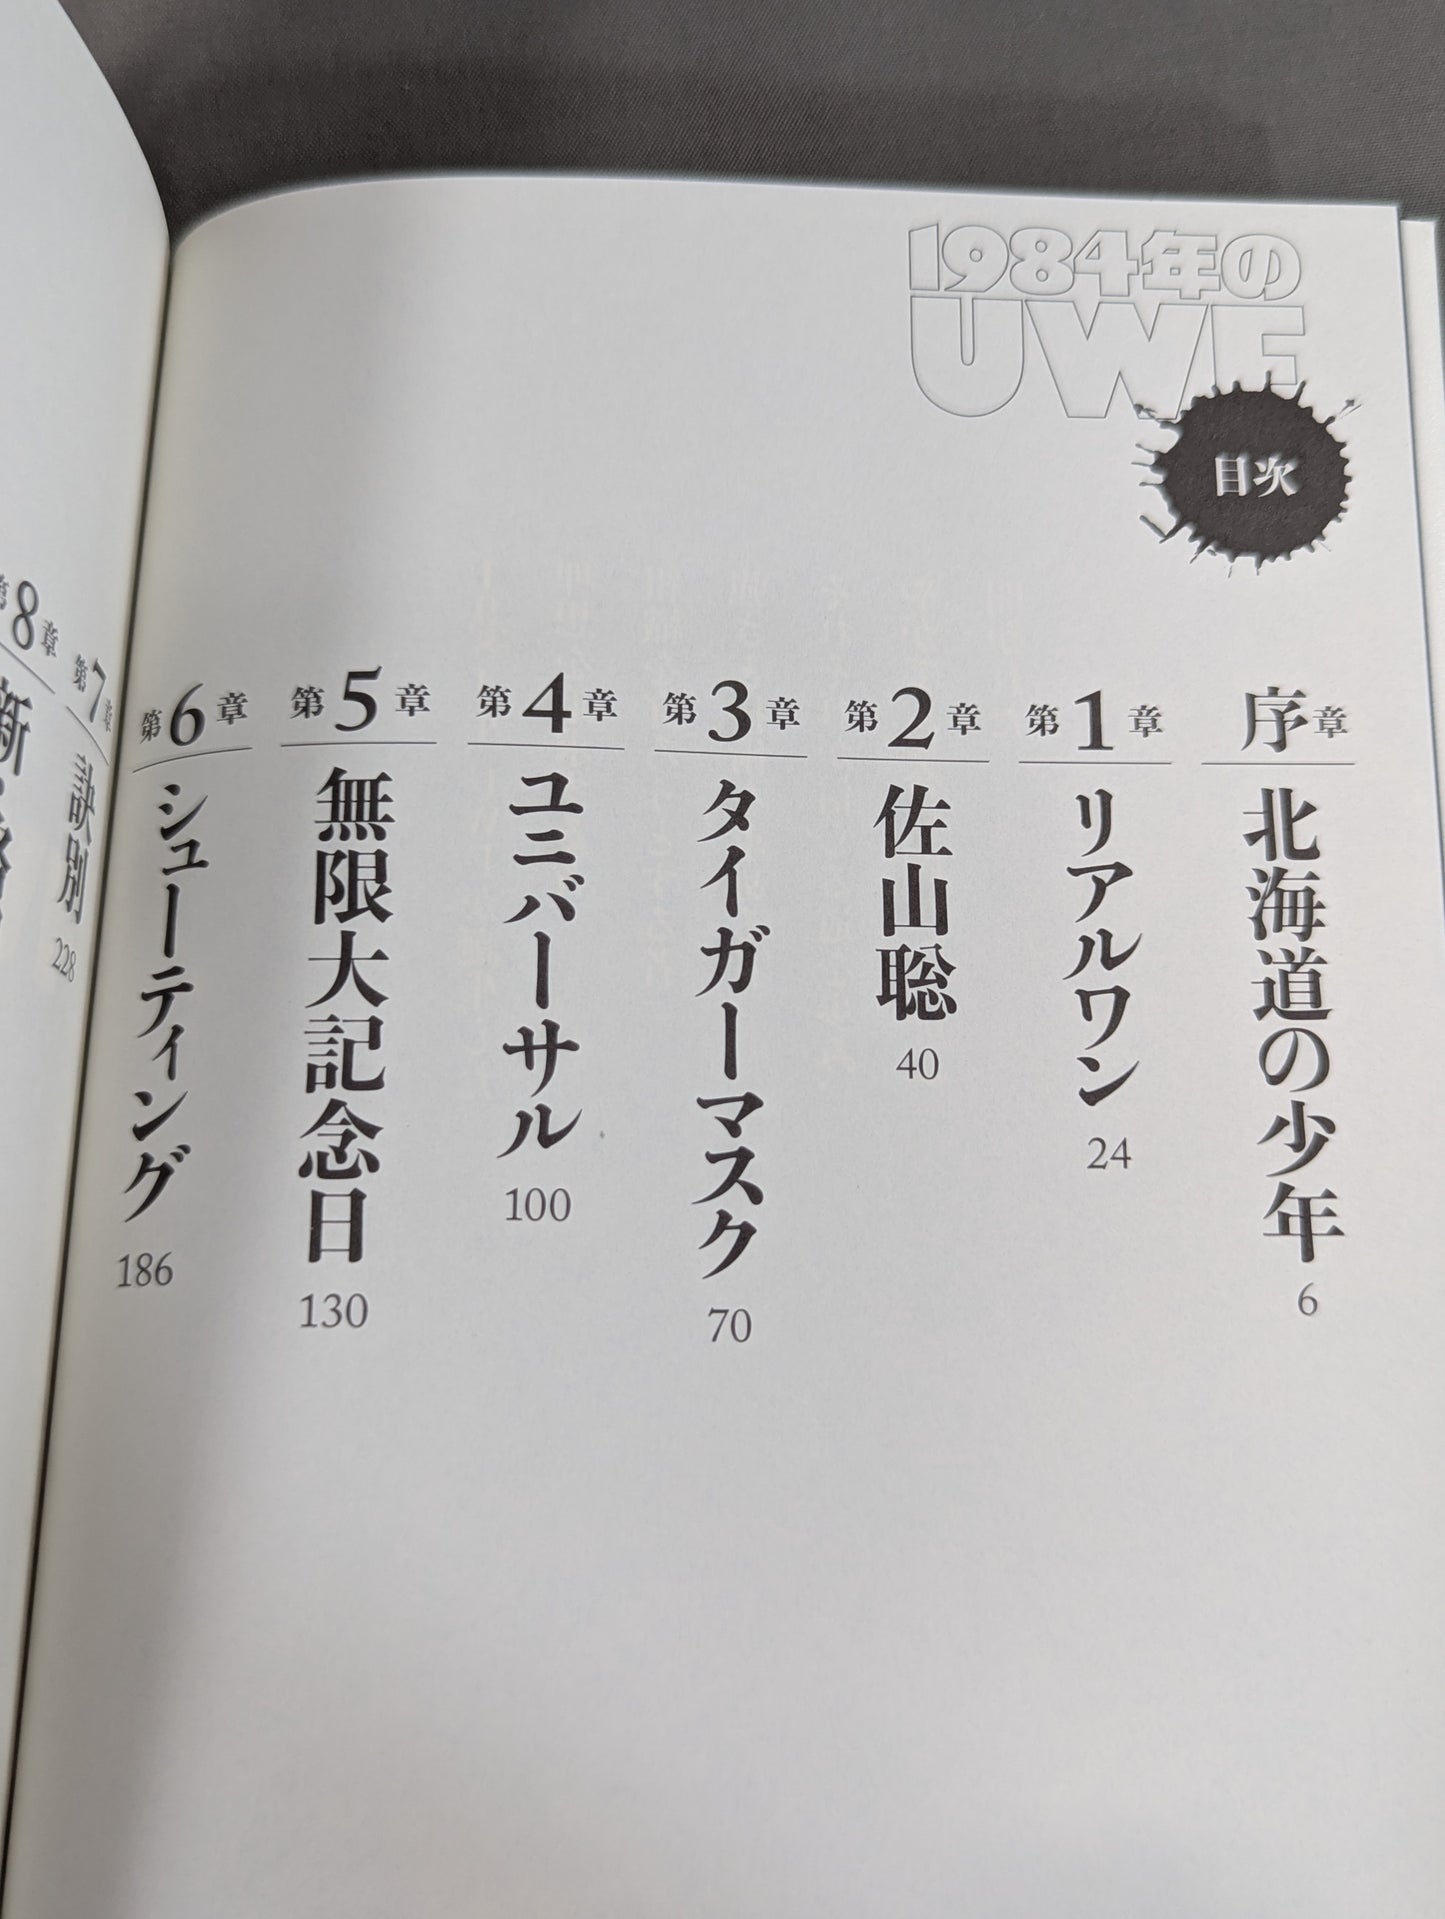 1984年の
UWF
目次
序章
北海道の少年 6
第1章
リアルワン 24
第2章
佐山聡 40
第3章
タイガーマスク 70
第4章
ユニバーサル 100
第5章
無限大記念日 130
第6章
シューティング 186
第7章
訣別 228
第8章
新・